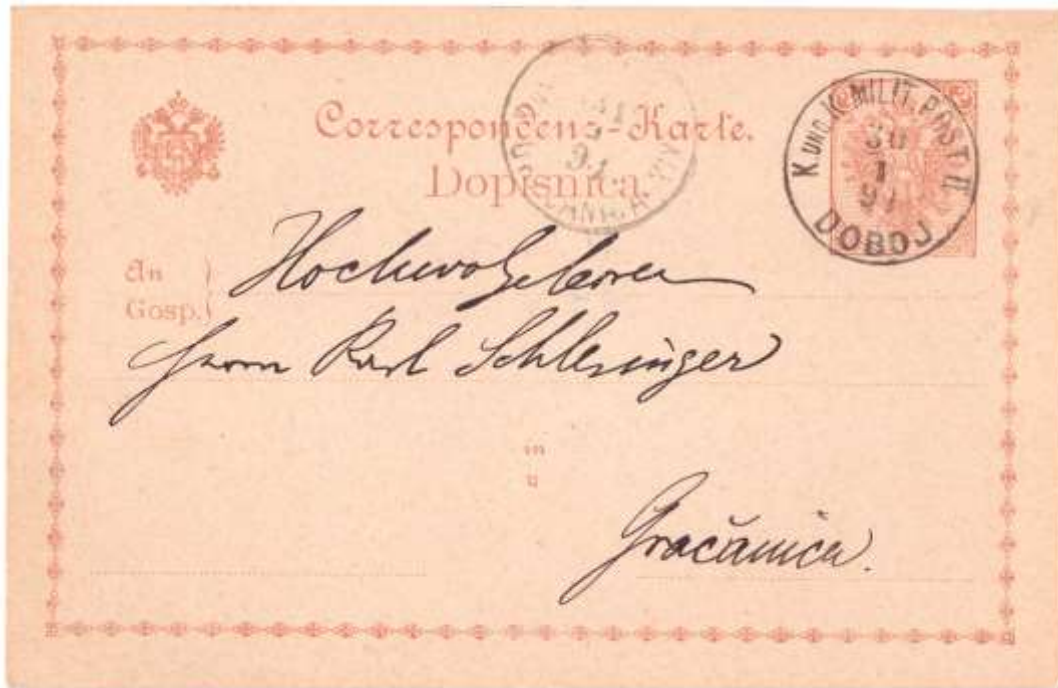 Correspondenz-Karte.
Dopisnica.
K. UND K. MILIT. POST II
30
1
DOBOJ
An
Gosp.
Hochwolgeboren
Herrn Karl Schlesinger
in
u
Gračanica.